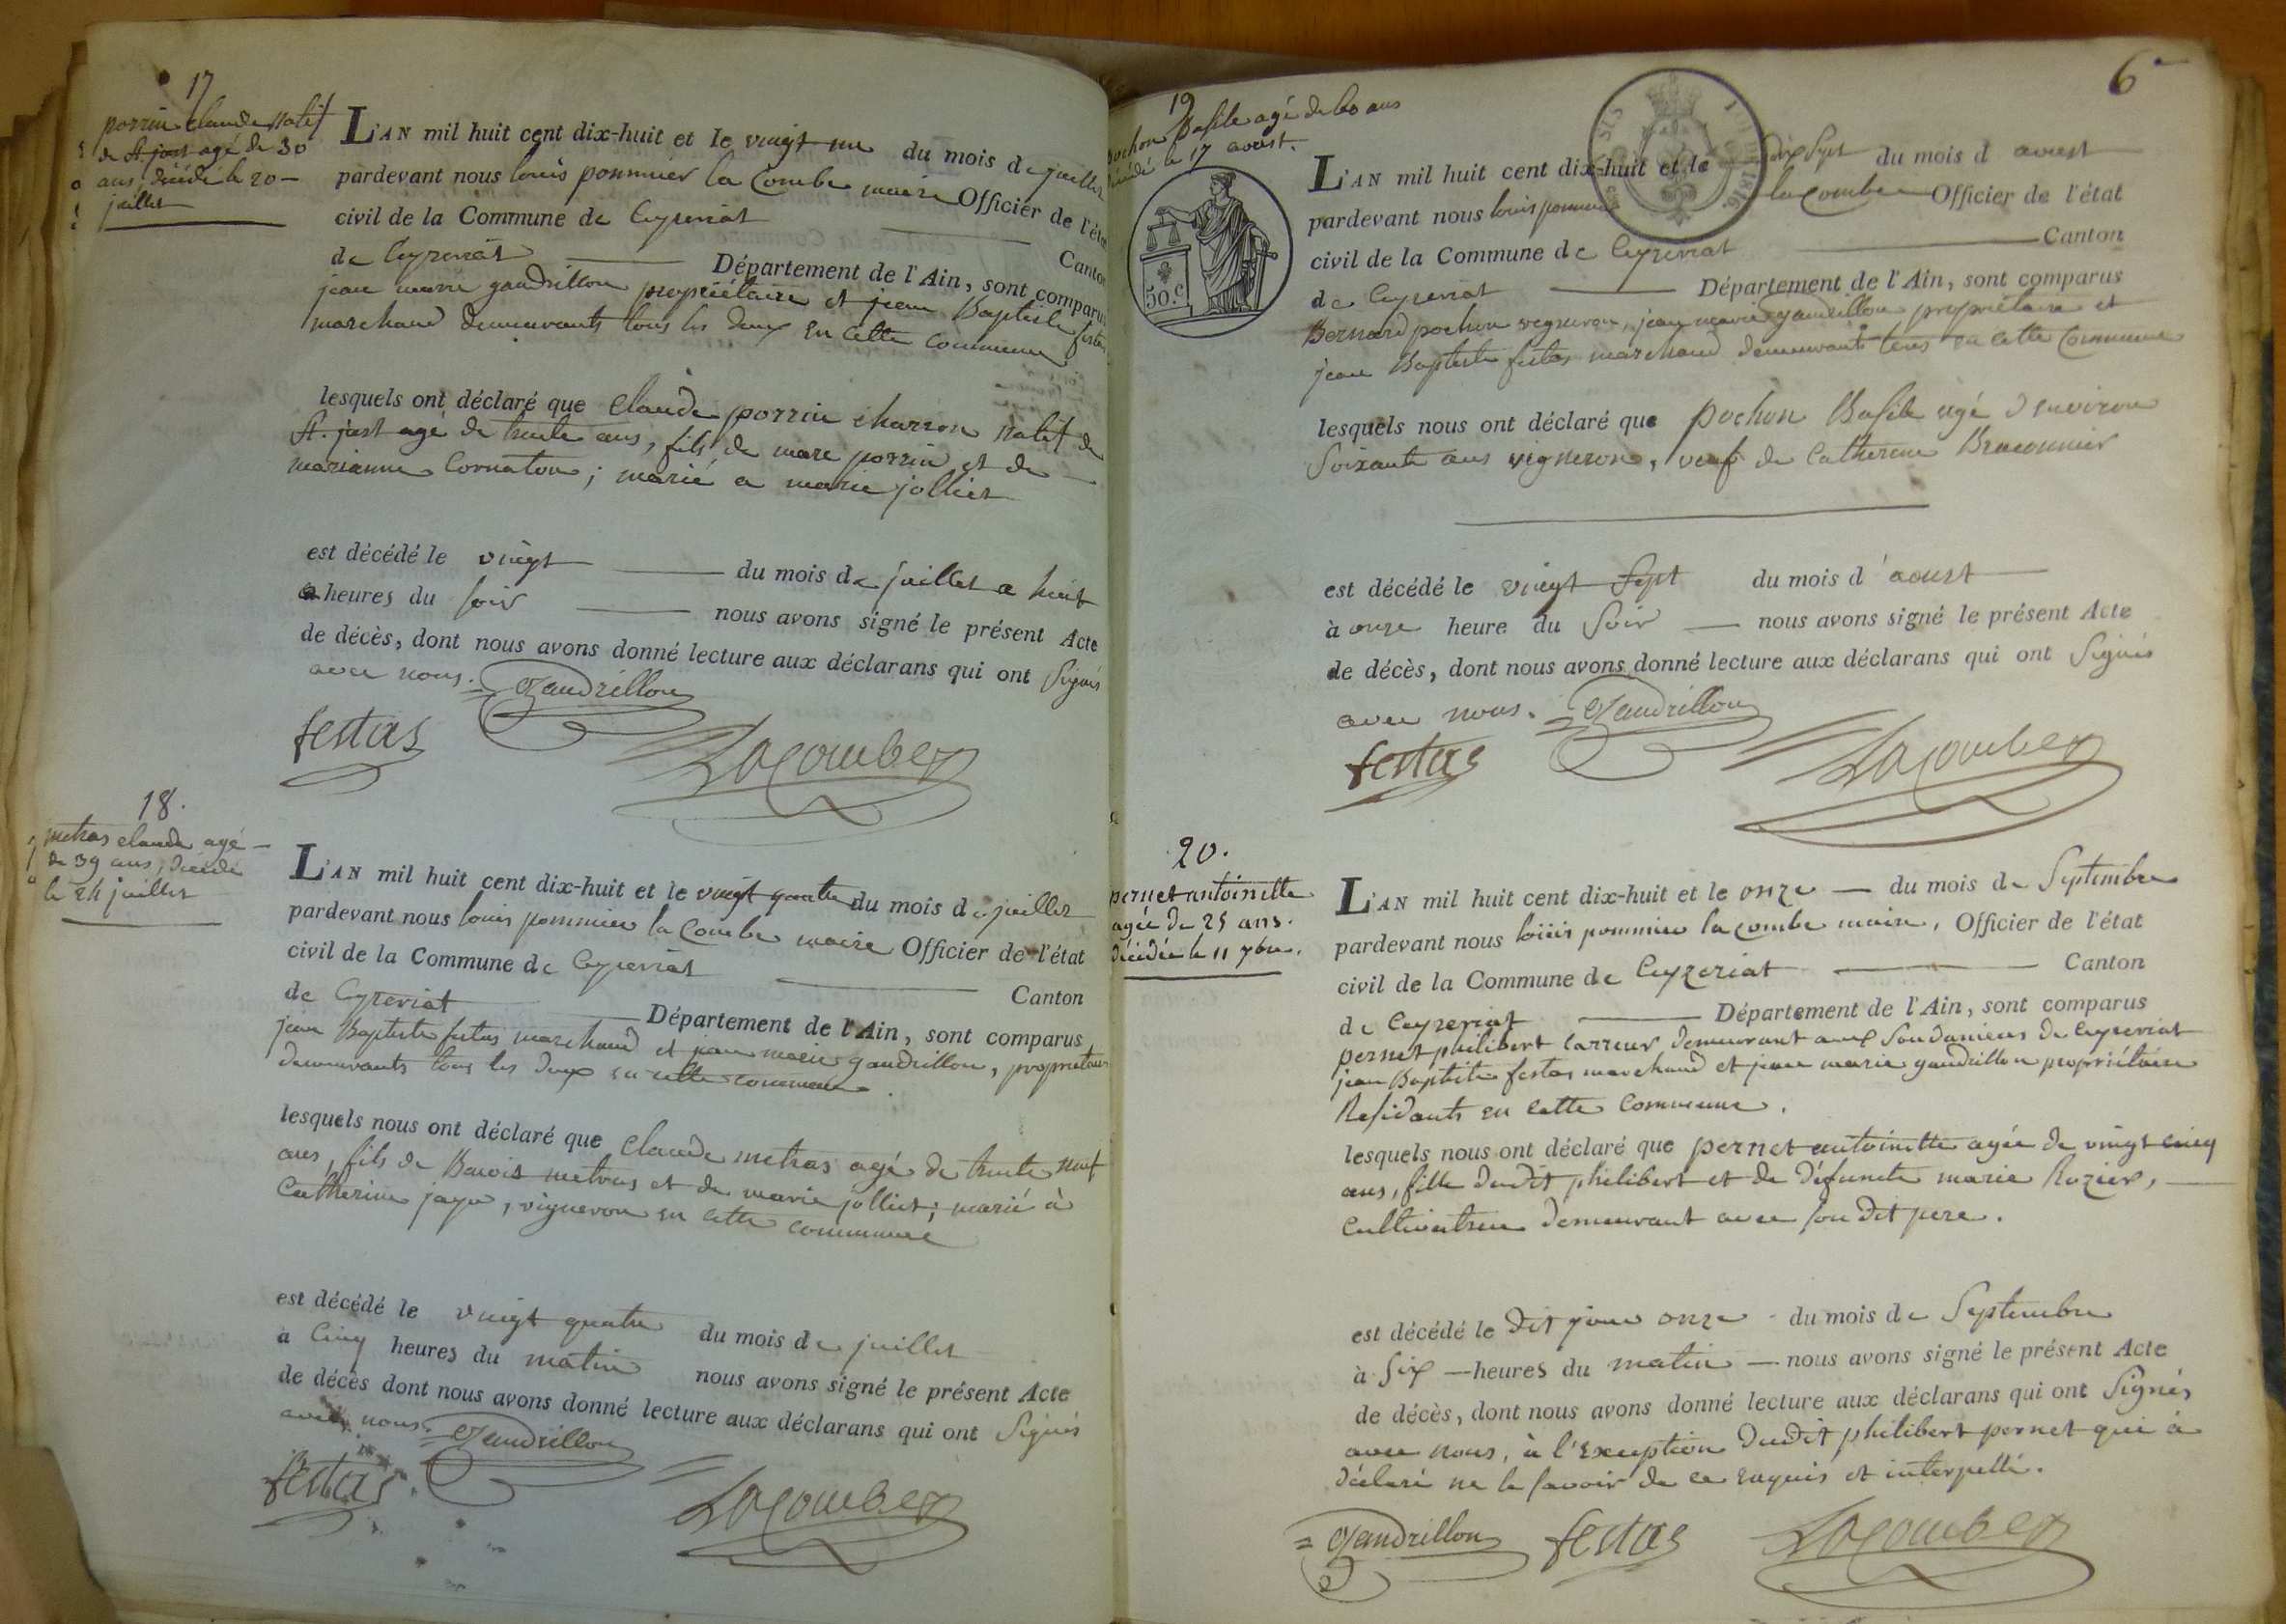 17
porrin claude natif
de st. just agé de 30
ans, décédé le 20
juillet
L'AN mil huit cent dix-huit et le vingt un du mois de juillet
pardevant nous louis pommier la Combe maire Officier de l'état
civil de la Commune de Ceyzeriat
Canton
de Ceyzeriat Département de l'Ain, sont comparus
jean marie gaudrillon propriétaire et jean Baptiste festas
marchand demeurants tous les deux en cette commune
lesquels ont déclaré que Claude porrin charron natif de
st. just agé de trente ans, fils de marc porrin et de
marianne Cornaton; marié a marie jolliet
est décédé le vingt du mois de juillet a huit
heures du soir nous avons signé le présent Acte
de décès, dont nous avons donné lecture aux déclarans qui ont signés
avec nous. Gaudrillon
festas Lacombe
18.
metras claude agé
de 39 ans, décédé
le 24 juillet
L'AN mil huit cent dix-huit et le vingt quatre du mois de juillet
pardevant nous louis pommier la Combe maire Officier de l'état
civil de la Commune de Ceyzeriat
Canton
de Ceyzeriat Département de l'Ain, sont comparus
jean Baptiste festas marchand et jean marie gaudrillon, propriétaire
demeurants tous les deux en cette commune.
lesquels nous ont déclaré que Claude metras agé de trente neuf
ans, fils de metras et de marie jolliet; marié à
Catherine, vigneron en cette commune
est décédé le vingt quatre du mois de juillet
à Cinq heures du matin nous avons signé le présent Acte
de décès dont nous avons donné lecture aux déclarans qui ont signés
avec nous. Gaudrillon
festas Lacombe
6
19
pochon Basile agé de 60 ans
décédé le 17 aoust.
50.c
1816
L'AN mil huit cent dix-huit et le dix sept du mois d aoust
pardevant nous louis pommier la combe Officier de l'état
civil de la Commune de Ceyzeriat Canton
de Ceyzeriat Département de l'Ain, sont comparus
Bernard pochon vigneron, jean marie gaudrillon propriétaire et
jean Baptiste festas marchand demeurants tous en cette Commune
lesquels nous ont déclaré que pochon Basile agé d'environ
soixante ans vigneron, veuf de Catherine Braconnier
est décédé le vingt sept du mois d'aoust
à onze heure du soir nous avons signé le présent Acte
de décès, dont nous avons donné lecture aux déclarans qui ont signés
avec nous. Gaudrillon
festas Lacombe
20.
pernet antoinette
agée de 25 ans.
décédée le 11 7bre.
L'AN mil huit cent dix-huit et le onze du mois de Septembre
pardevant nous louis pommier la combe maire, Officier de l'état
civil de la Commune de Ceyzeriat Canton
de Ceyzeriat Département de l'Ain, sont comparus
pernet philibert carreur demeurant aux Soudanieres de Ceyzeriat
jean Baptiste festas marchand et jean marie gaudrillon propriétaire
Residants en cette Commune.
lesquels nous ont déclaré que pernet antoinette agée de vingt cinq
ans, fille dudit philibert et de défunte marie Rozier,
cultivatrice demeurant avec son dit pere.
est décédé le dit jour onze du mois de Septembre
à six heures du matin nous avons signé le présent Acte
de décès, dont nous avons donné lecture aux déclarans qui ont signés
avec nous, à l'exception dudit philibert pernet qui à
déclaré ne le savoir de ce enquis et interpellé.
Gaudrillon festas Lacombe